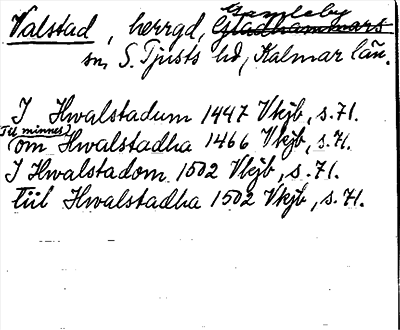 Gamleby
Valstad, herrgd, Gladhammars
sn, S. Tjusts hd, Kalmar län.
I Hwalstadum 1447 Vkjb, s. 71.
(Til minnes)
om Hwalstadha 1466 Vkjb, s. 71.
I Hwalstadom 1502 Vkjb, s. 71.
tiil Hwalstadha 1502 Vkjb, s. 71.